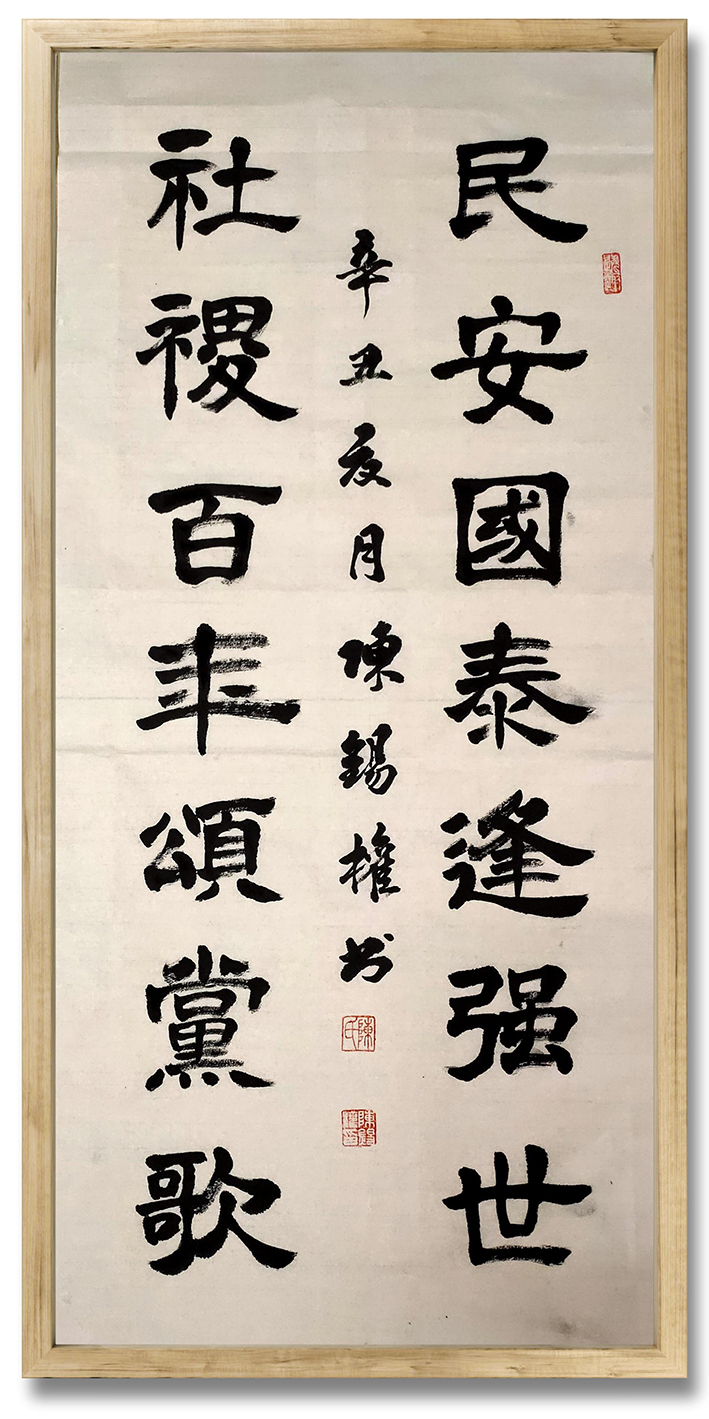 民安國泰逢强世
社禝百年頌黨歌
辛丑夏月陳錫權书
陳氏